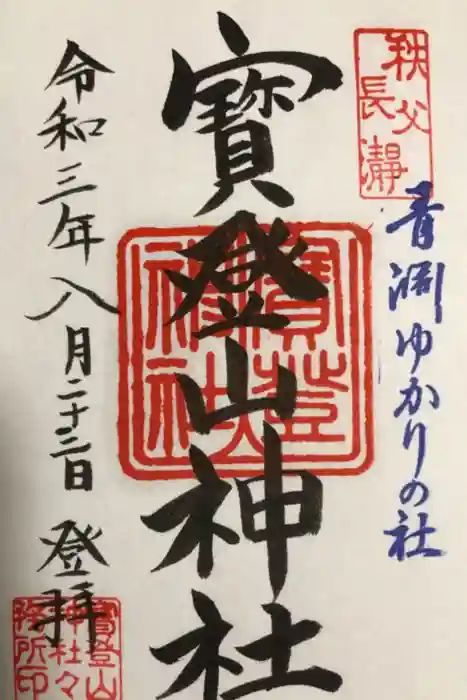 秩父
長瀞
青渕ゆかりの社
寶登山神社
寶登山
神社
令和三年八月二十二日 登拝
寶登山
神社々
務所印